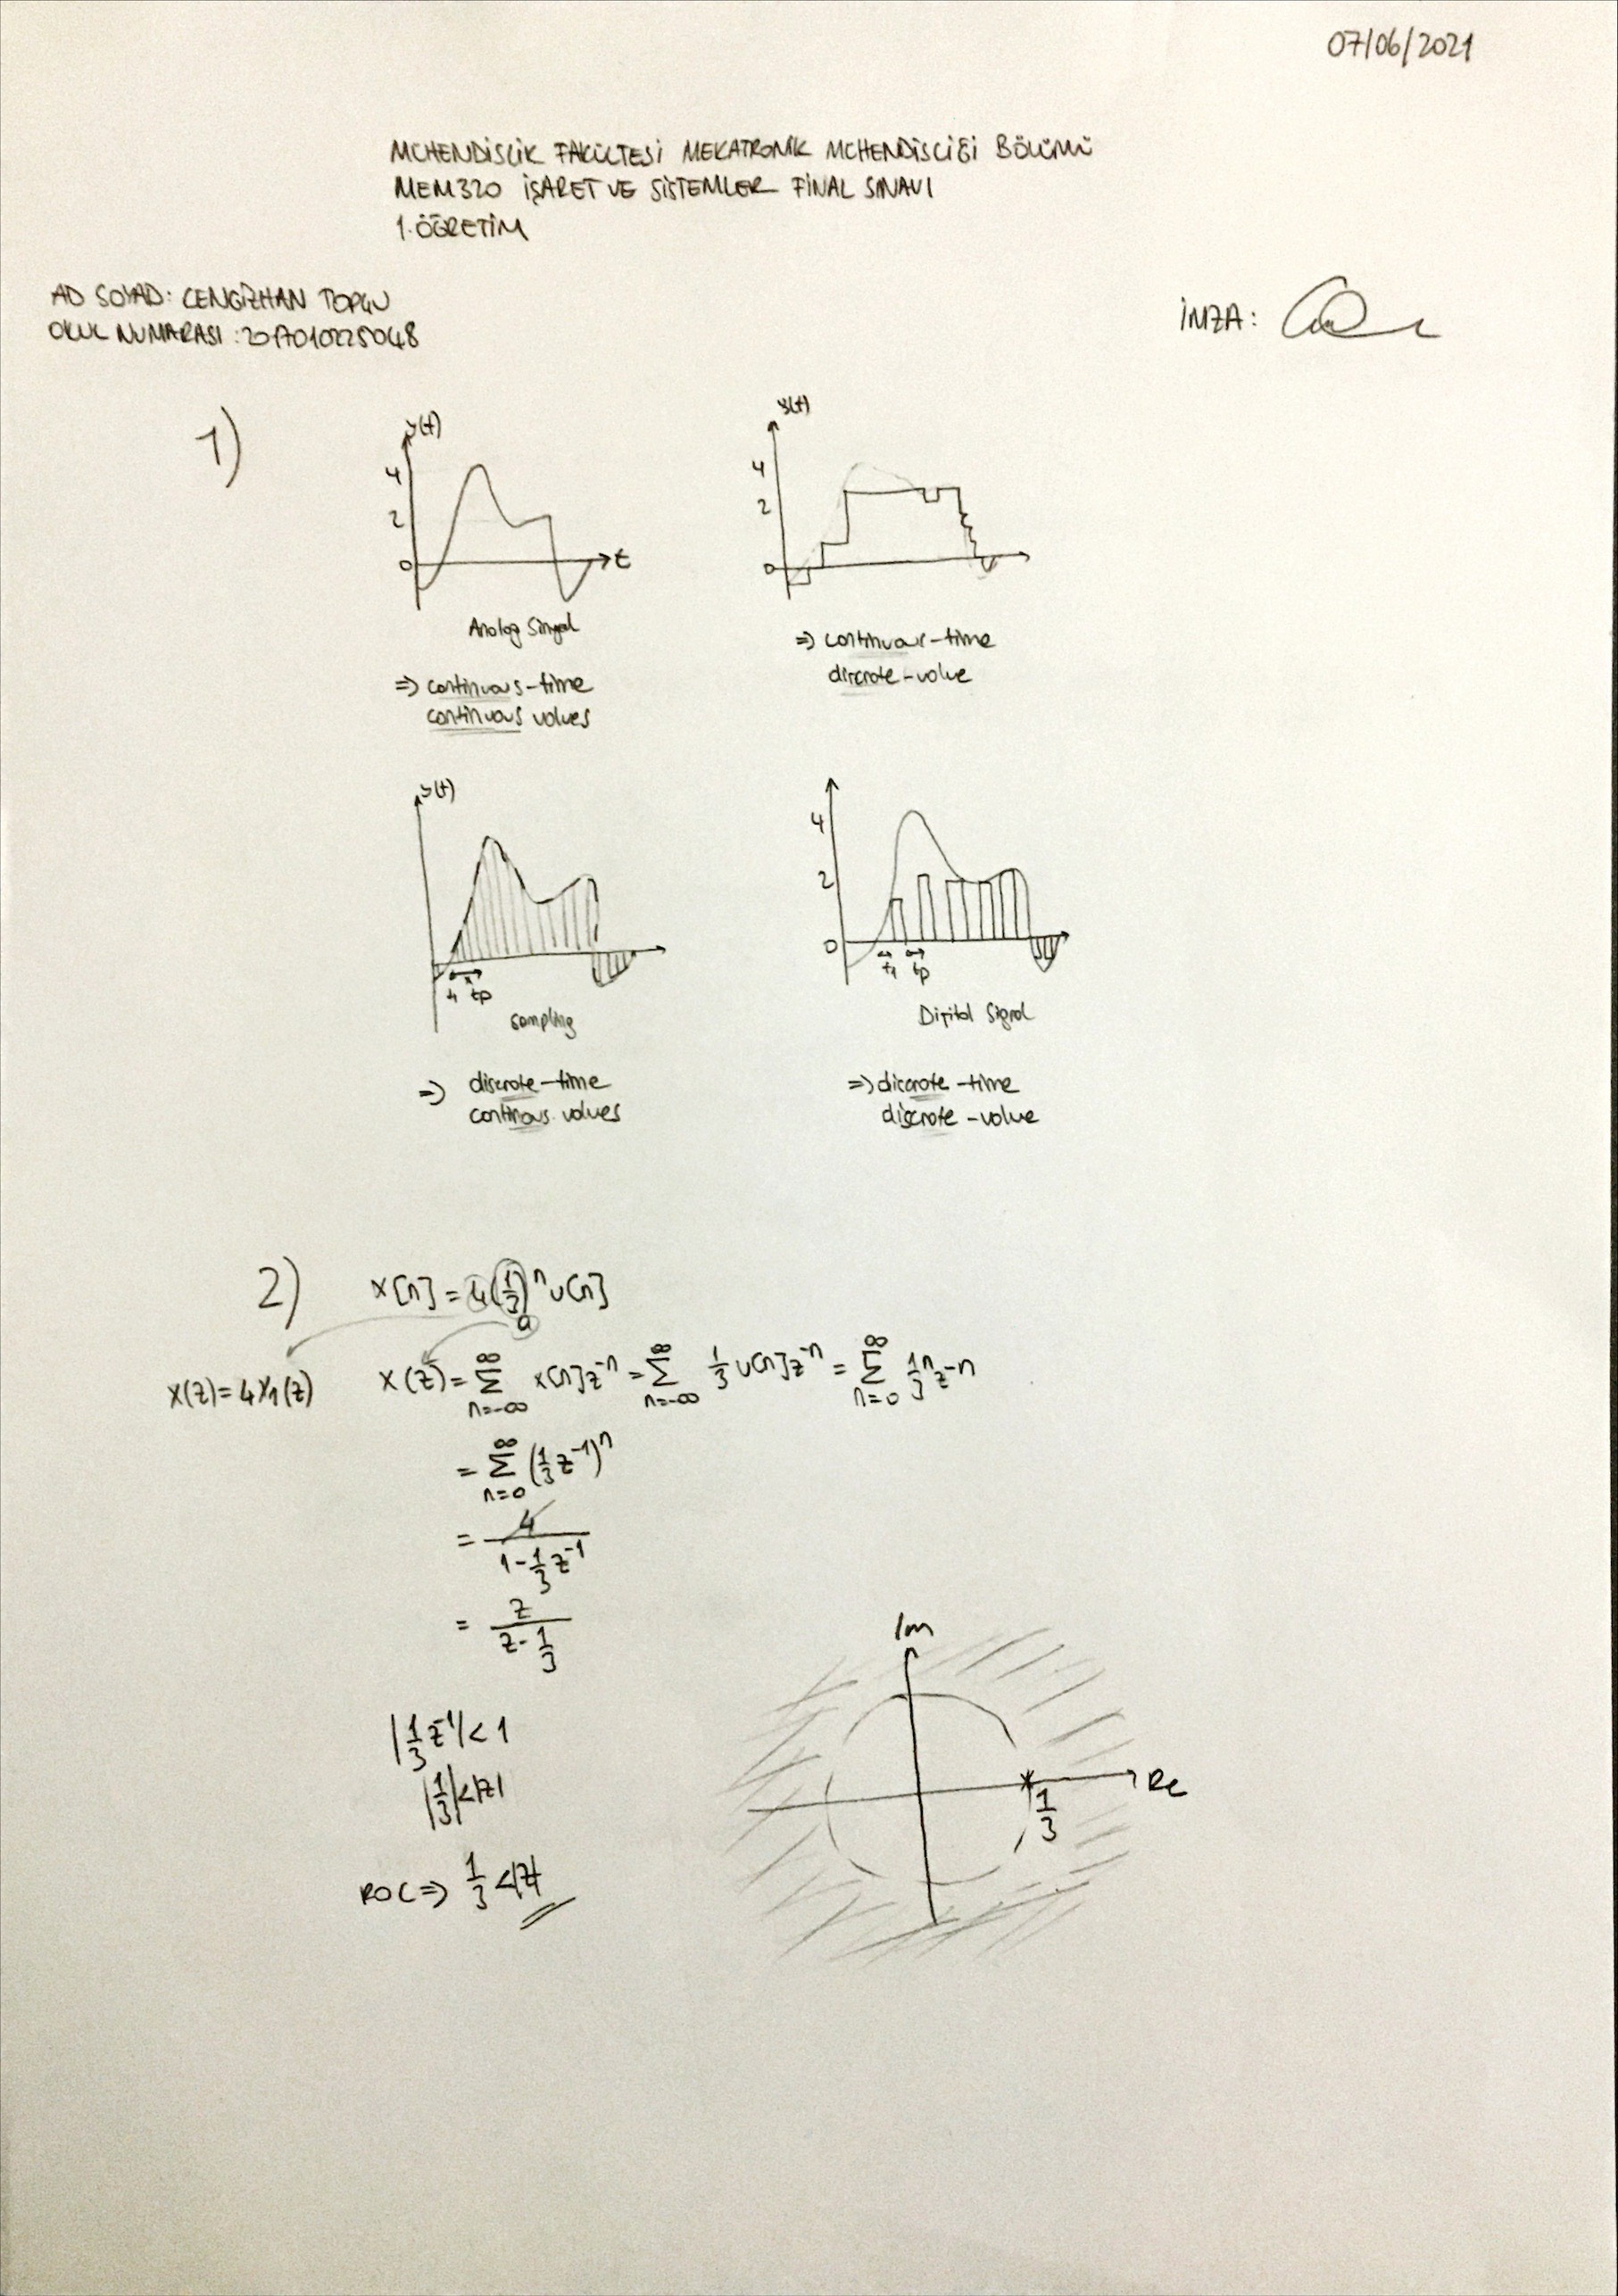 07/06/2021
MÜHENDİSLİK FAKÜLTESİ MEKATRONİK MÜHENDİSLİĞİ BÖLÜMÜ
MEM320 İŞARET VE SİSTEMLER FİNAL SINAVI
1.ÖĞRETİM
AD SOYAD: CENGİZHAN TOPÇU
OKUL NUMARASI: 20170102225048
İMZA:
1)
y(t)
4
2
0
t
Analog Singal
⇒ continuous-time
continuous values
y(t)
4
2
0
⇒ continuous-time
discrote-value
y(t)
t1 tp
sampling
⇒ discrote-time
continous values
4
2
0
t1 tp
Digital Signal
⇒ discrote-time
discrote-value
2) x[n] = 4(1/3)^n u[n]
a
X(z)=4X1(z) X(z)= Σ_{n=-∞}^{∞} x[n]z^-n = Σ_{n=-∞}^{∞} 1/3 u[n]z^-n = Σ_{n=0}^{∞} 1/3^n z^-n
= Σ_{n=0}^{∞} (1/3 z^-1)^n
= 4/(1-1/3 z^-1)
= z/(z-1/3)
|1/3 z^-1| < 1
|1/3| < |z|
ROC ⇒ 1/3 < |z|
Im
Re
1/3